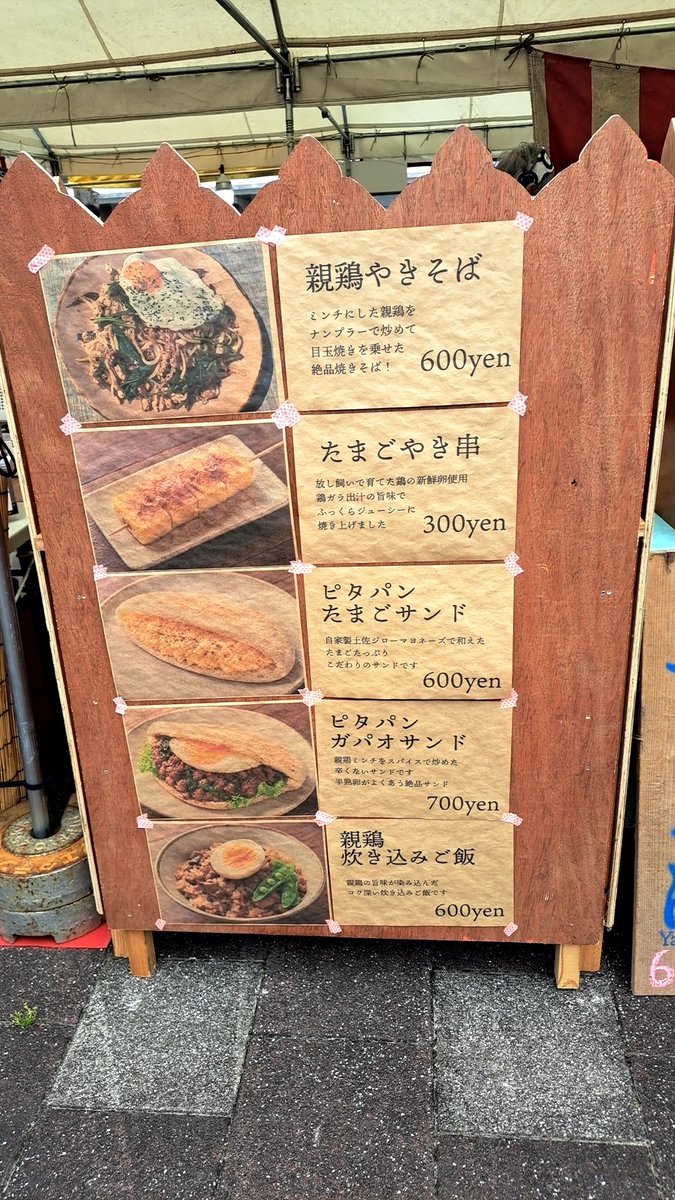 親鶏やきそば
ミンチにした親鶏を
ナンプラーで炒めて
目玉焼きを乗せた
絶品焼きそば！
600yen
たまごやき串
放し飼いで育てた鶏の新鮮卵使用
鶏ガラ出汁の旨味で
ふっくらジューシーに
焼き上げました
300yen
ピタパン
たまごサンド
自家製土佐ジローマヨネーズで和えた
たまごたっぷり
こだわりのサンドです
600yen
ピタパン
ガパオサンド
親鶏ミンチをスパイスで炒めた
辛くないサンドです
半熟卵がよくあう絶品サンド
700yen
親鶏
炊き込みご飯
親鶏の旨味が染み込んだ
コク深い炊き込みご飯です
600yen